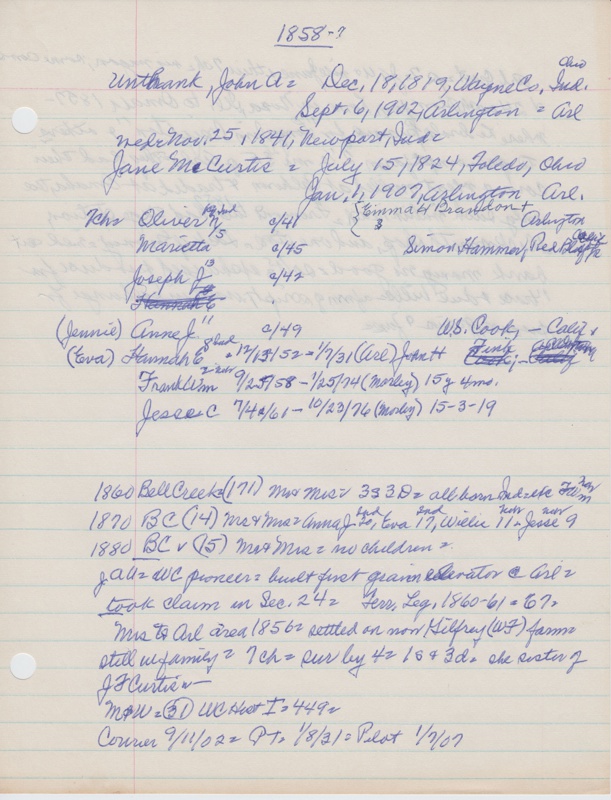 1858-?
Unthank, John A = Dec, 18, 1819, Wayne Co, Ohio Ind.
Sept. 6, 1902, Arlington = Arl
Nov. 25, 1841, Newport, Ind =
Jane McCurtis = July 15, 1824, Toledo, Ohio
Jan. 1, 1907, Arlington Arl.
7ch = Oliver c/41 {Emma & Brandon + Arlington
Marietta c/45 Simon Hammer, Red Bluff Calif
Joseph J 13 c/47
Hannah E
(Jennie) Anne J. 11 c/49 W.S. Cook, - Calif +
(Eva) Hannah E 8 Ind = 12/13/52 = 1/7/31 (Arl) John H Fink
Frank Wm 2 Neb 9/25/58 - 1/25/74 (Morley) 15 y 4 ms.
Jesse C 7/4/61 - 10/23/76 (Morley) 15-3-19
1860 Bell Creek = (171) Mr & Mrs = 3 s 3 D = all born Ind = etc Wm
1870 BC (14) Mr & Mrs = Anna J. Ind 20, Eva Ind 17, Willie 11 = Jesse 9
1880 BC v (15) Mr & Mrs = no children =
J A U = WC pioneer = built first grain elevator @ Arl =
took claim in Sec. 24 = Terr. Leg, 1860-61 = 67 =
Mrs to Arl area 1856 = settled on now Hilfrey (WF) farm =
still in family = 7 ch = sur by 4 = 1 s & 3 d = she sister of
J F Curtis =
M & W = (31) WC Hist I = 449 =
Courier 9/11/02 = PT = 1/8/31 = Pilot 1/7/07